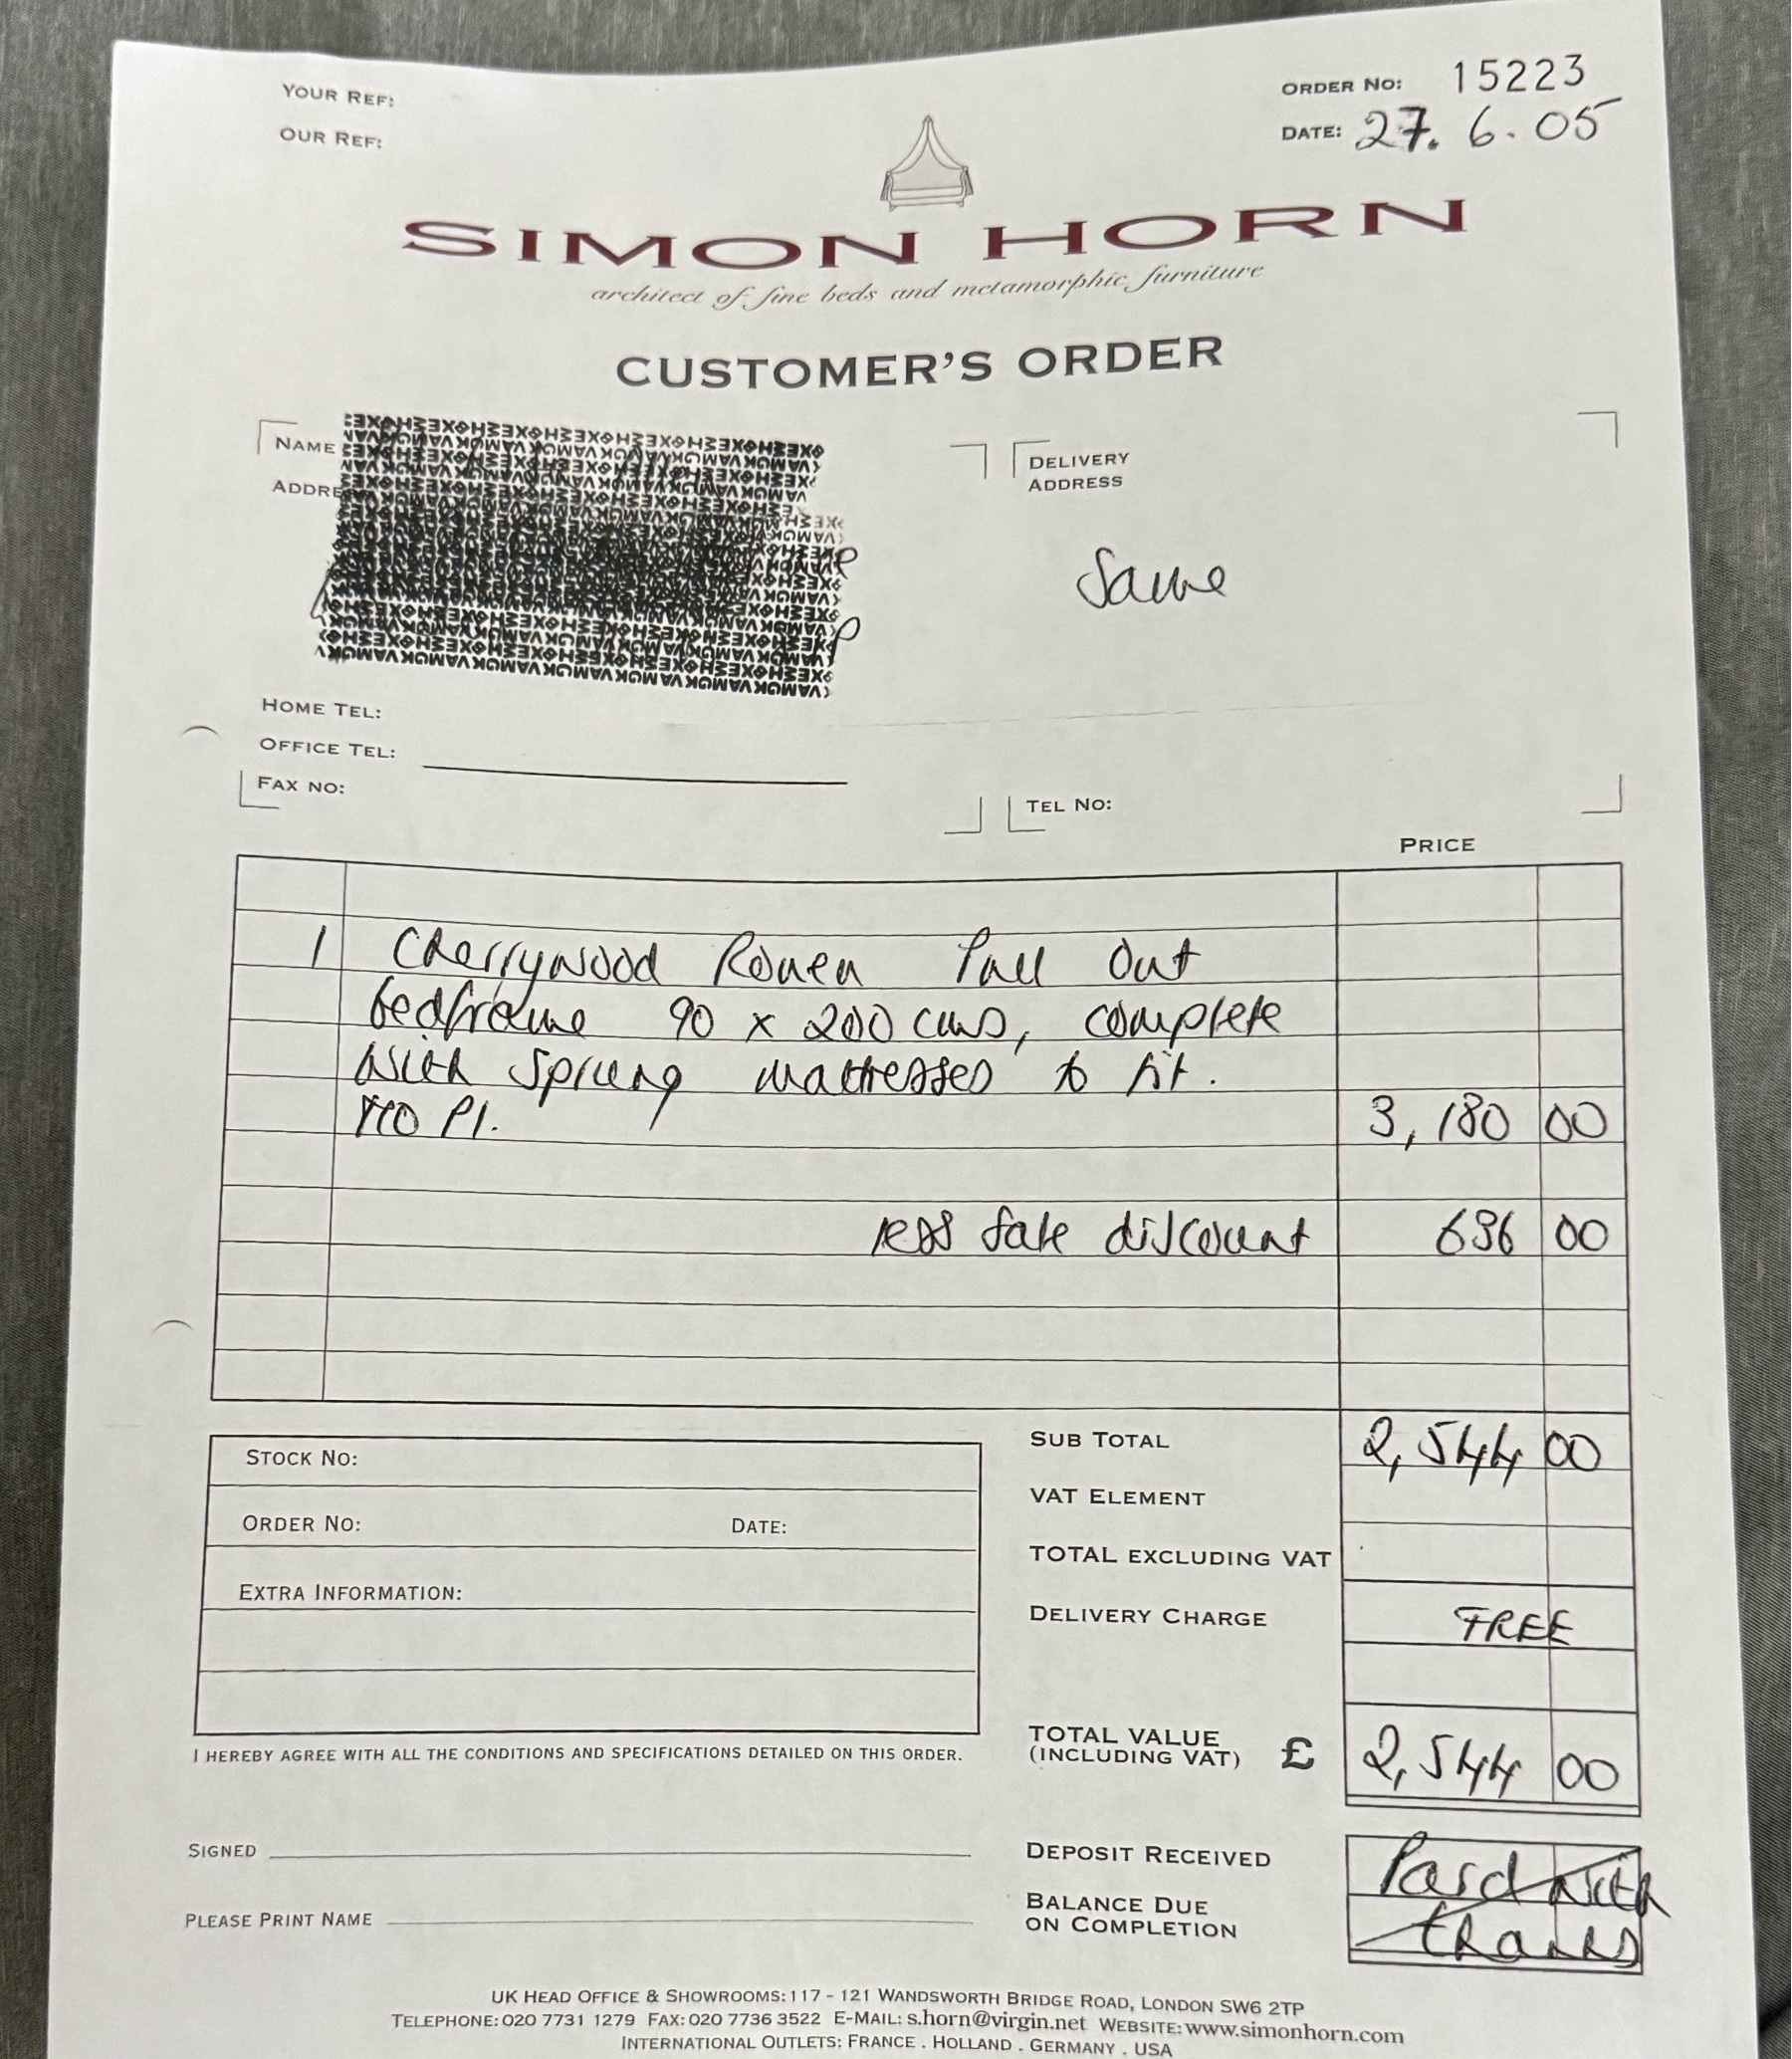 YOUR REF:
OUR REF:
ORDER NO: 15223
DATE: 27. 6. 05
SIMON HORN
architect of fine beds and metamorphic furniture
CUSTOMER'S ORDER
NAME
ADDRE
DELIVERY
ADDRESS
Same
HOME TEL:
OFFICE TEL:
FAX NO:
TEL NO:
PRICE
1 Cherrywood Rouen Pull Out
bedframe 90 x 200 cms, complete
with sprung mattresses to fit.
P1. 3,180 00
less sale discount 636 00
SUB TOTAL 2,544 00
VAT ELEMENT
TOTAL EXCLUDING VAT
DELIVERY CHARGE FREE
TOTAL VALUE
(INCLUDING VAT) £ 2,544 00
STOCK NO:
ORDER NO: DATE:
EXTRA INFORMATION:
I HEREBY AGREE WITH ALL THE CONDITIONS AND SPECIFICATIONS DETAILED ON THIS ORDER.
SIGNED
PLEASE PRINT NAME
DEPOSIT RECEIVED Paid with
BALANCE DUE
ON COMPLETION thanks
UK HEAD OFFICE & SHOWROOMS: 117 - 121 WANDSWORTH BRIDGE ROAD, LONDON SW6 2TP
TELEPHONE: 020 7731 1279 FAX: 020 7736 3522 E-MAIL: s.horn@virgin.net WEBSITE: www.simonhorn.com
INTERNATIONAL OUTLETS: FRANCE . HOLLAND . GERMANY . USA